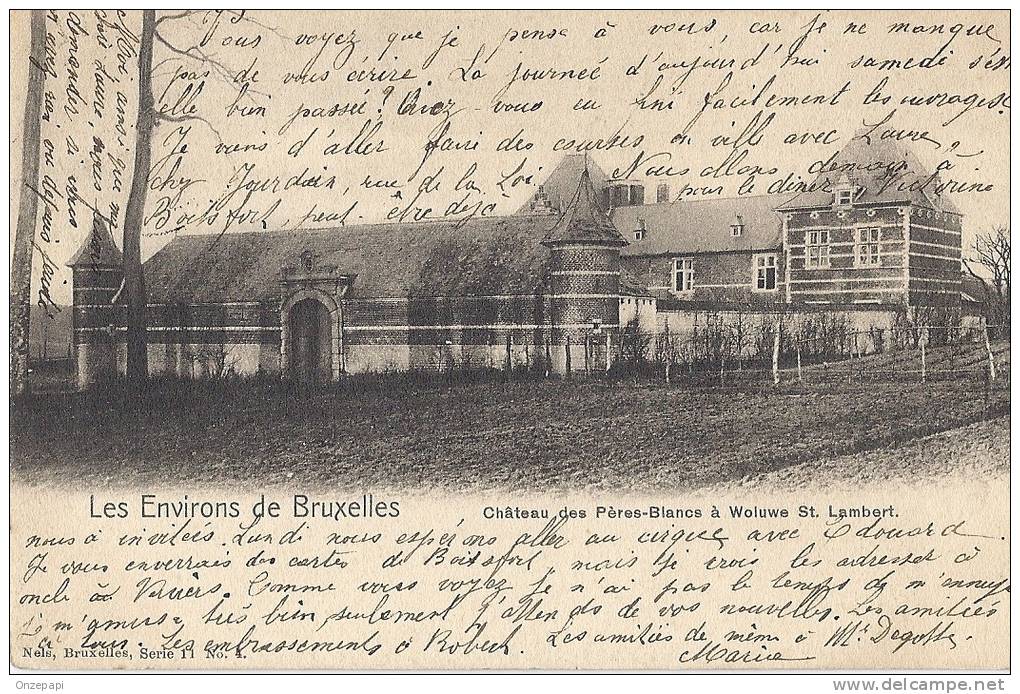 Vous voyez que je pense à vous, car je ne manque
pas de vous écrire. La journée d'aujourd'hui samedi s'est
elle bien passée? Avez-vous eu fini facilement les ouvrages.
Je viens d'aller faire des courses en ville avec Laure
chez Jourdain, rue de la Loi. Nous allons demain à
Boitsfort, peut-être déjà pour le diner, Victorine
Moi ainsi que ma
Laure nous
demander si
rien ou depuis
Les Environs de Bruxelles
Château des Pères-Blancs à Woluwe St. Lambert.
nous a invitées. Lundi nous espérons aller au cirque avec Edouard.
Je vous enverrais des cartes de Boitsfort, mais je crois les adresser à
oncle à. Comme vous voyez je n'ai pas le temps de m'ennuyer
je m'amuse très bien, seulement j'attends de vos nouvelles. Les amitiés
à tous. Les embrassements à Robert. Les amitiés de même à Mr. Degoffe.
Marie
Nels, Bruxelles, Serie 11 No. 4.
Onzepapi
www.delcampe.net